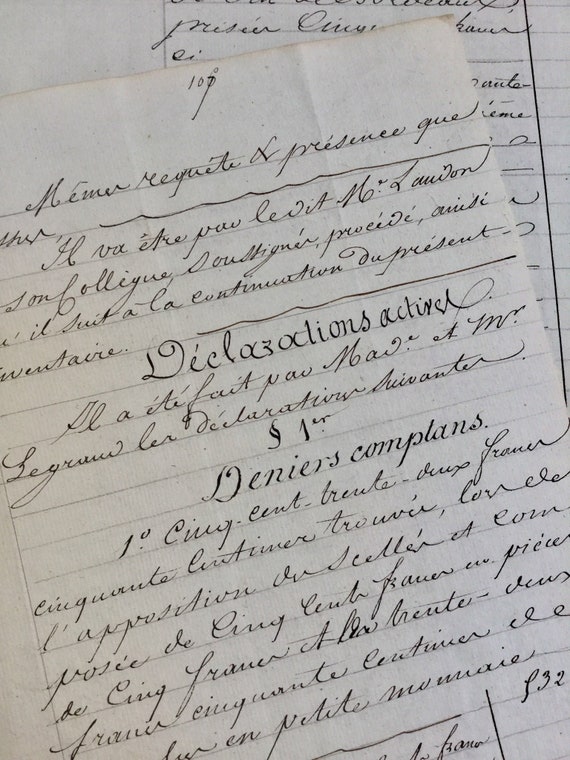 prisée Cinq francs
ci
107
Mêmes requête & présence que
Il va être par ledit Mr. Landon
son Collègue, soussignés, procédé, ainsi
qu'il suit à la continuation du présent
inventaire.
Déclarations actives.
Il a été fait par Made. et Mr.
Legrand les déclarations suivantes.
§ 1er
Deniers comptans.
1º. Cinq-cent-trente-deux francs
cinquante Centimes trouvés, lors de
l'apposition des scellés et com
posée de Cinq Cents francs en pièces
de Cinq francs et trente-deux
francs cinquante centimes
en petite monnaie
532